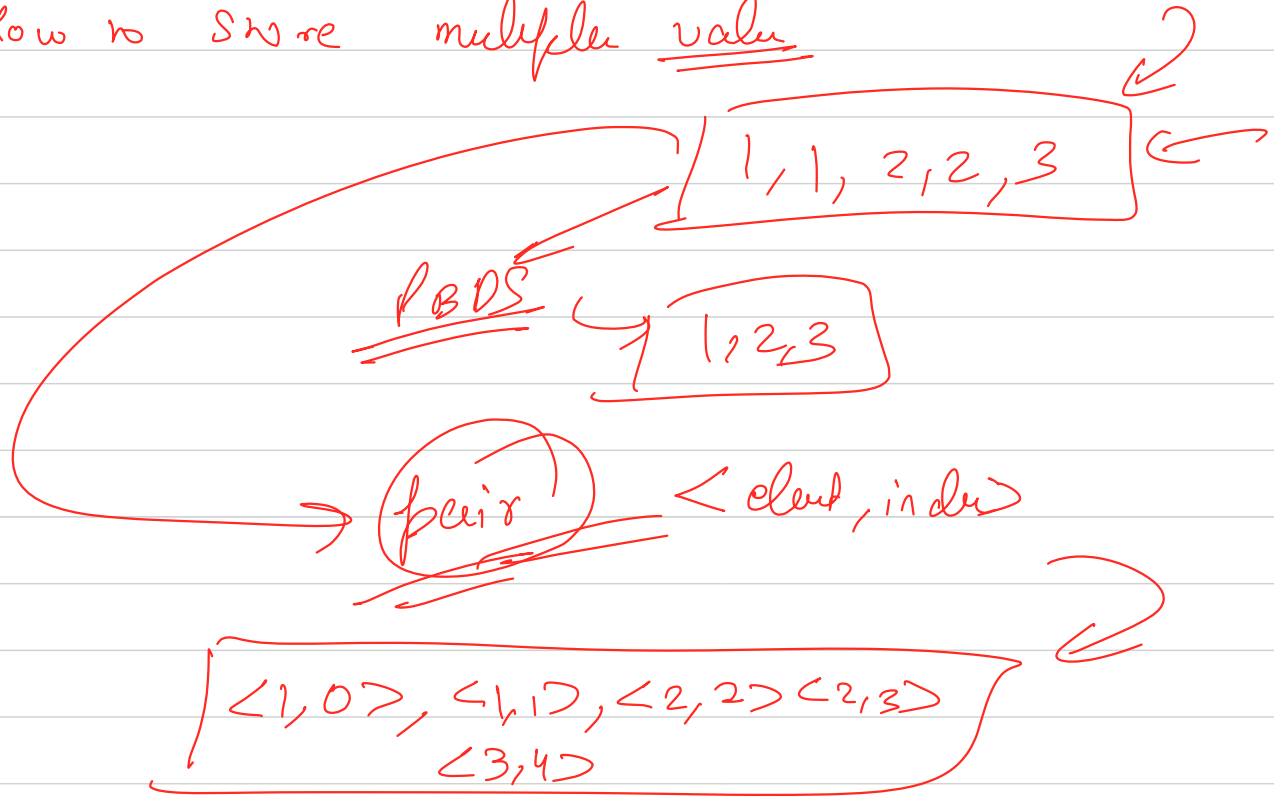 how to store multiple value
1, 1, 2, 2, 3
PBDS
1, 2, 3
pair <element, index>
<1, 0>, <1, 1>, <2, 2> <2, 3>
<3, 4>